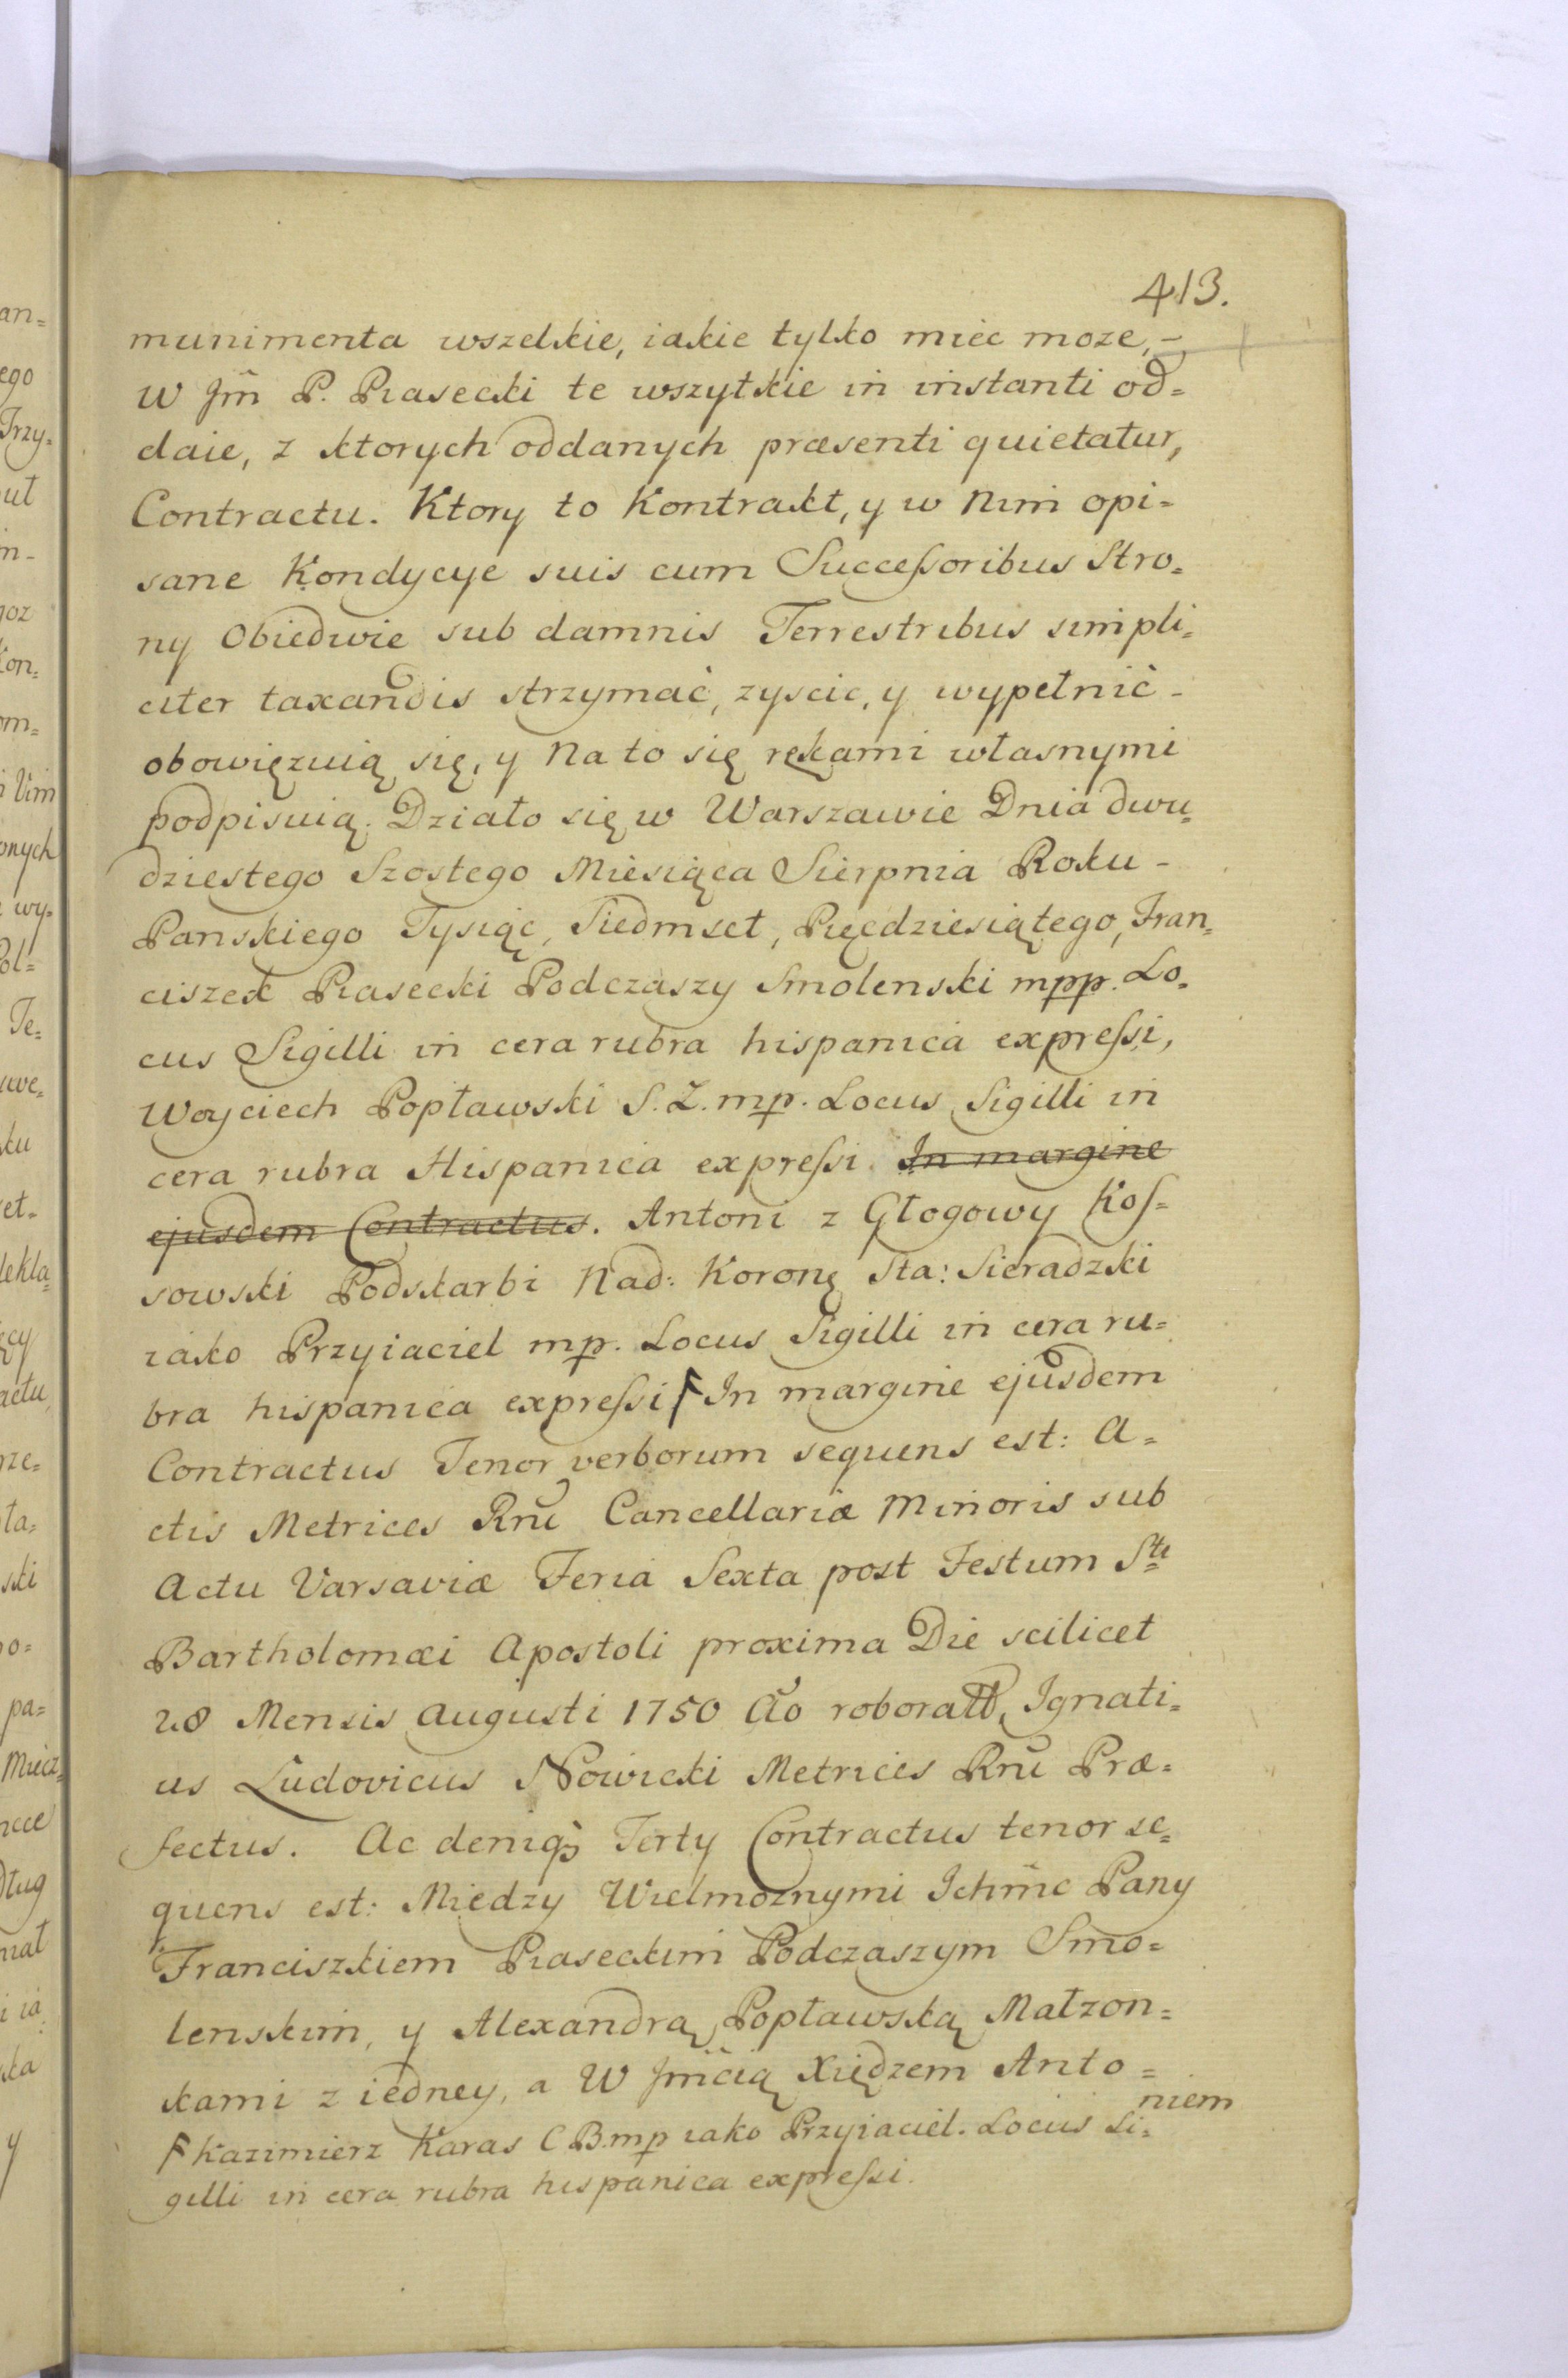 413.
munimenta wszelkie, iakie tylko miec moze, -
W Jm̃ P. Piasecki te wszytkie in instanti od=
daie, z ktorych oddanych præsenti quietatur,
Contractu. Ktory to Kontrakt, y w Nim opi=
sane Kondycye suis cum Succeſsoribus Stro=
ny Obiedwie sub damnis Terrestribus simpli=
citer taxandis strzymać, zyscic, y wypełnić -
obowięzuią się, y Na to się rękami własnymi
podpisuią. Działo się w Warszawie Dnia dwu=
dziestego Szostego Miesiąca Sierpnia Roku -
Panskiego Tysiąc, Siedmset, Pięcdziesiątego, Fran=
ciszek Piasecki Podczaszy Smolenski mpp. Lo=
cus Sigilli in cera rubra hispanica expreſsi,
Woyciech Popławski S. Z. mp. Locus Sigilli in
cera rubra Hispanica expreſsi. In margine
ejusdem Contractus. Antoni z Głogowy Koſ=
sowski Podskarbi Nad: Koronę Sta: Sieradzki
iako Przyiaciel mp. Locus Sigilli in cera ru=
bra hispanica expreſsi In margine ejusdem
Contractus Tenor verborum sequens est: A=
ctis Metrices Rnũ Cancellariæ Minoris sub
Actu Varsaviæ Feria Sexta post Festum Sti
Bartholomæi Apostoli proxima Die scilicet
28 Mensis Augusti 1750 Ao̊ roborat̃, Ignati=
us Ludovicus Nowicki Metrices Rnũ Præ=
fectus. Ac deniqꝫ Terty Contractus tenor se=
quens est: Miedzy Wielmoznymi Ichm̃c Pany
Franciszkiem Piaseckim Podczaszym Smo=
lenskim, y Alexandrą Popławską Małzon=
kami z iedney, a W Jm̃cią Xiędzem Anto=
niem
Kazimierz Karas C B. mp iako Przyiaciel. Locus Si=
gilli in cera rubra hispanica expreſsi.